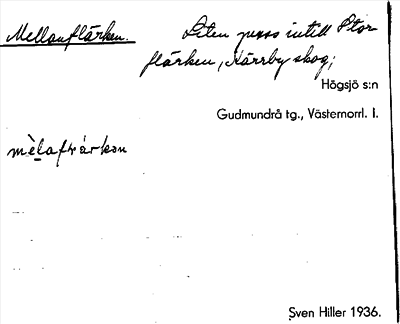 Mellanflärken. Liten puss intill Stor-
flärken, Kärrby skog;
Högsjö s:n
Gudmundrå tg., Västernorrl. l.
Sven Hiller 1936.